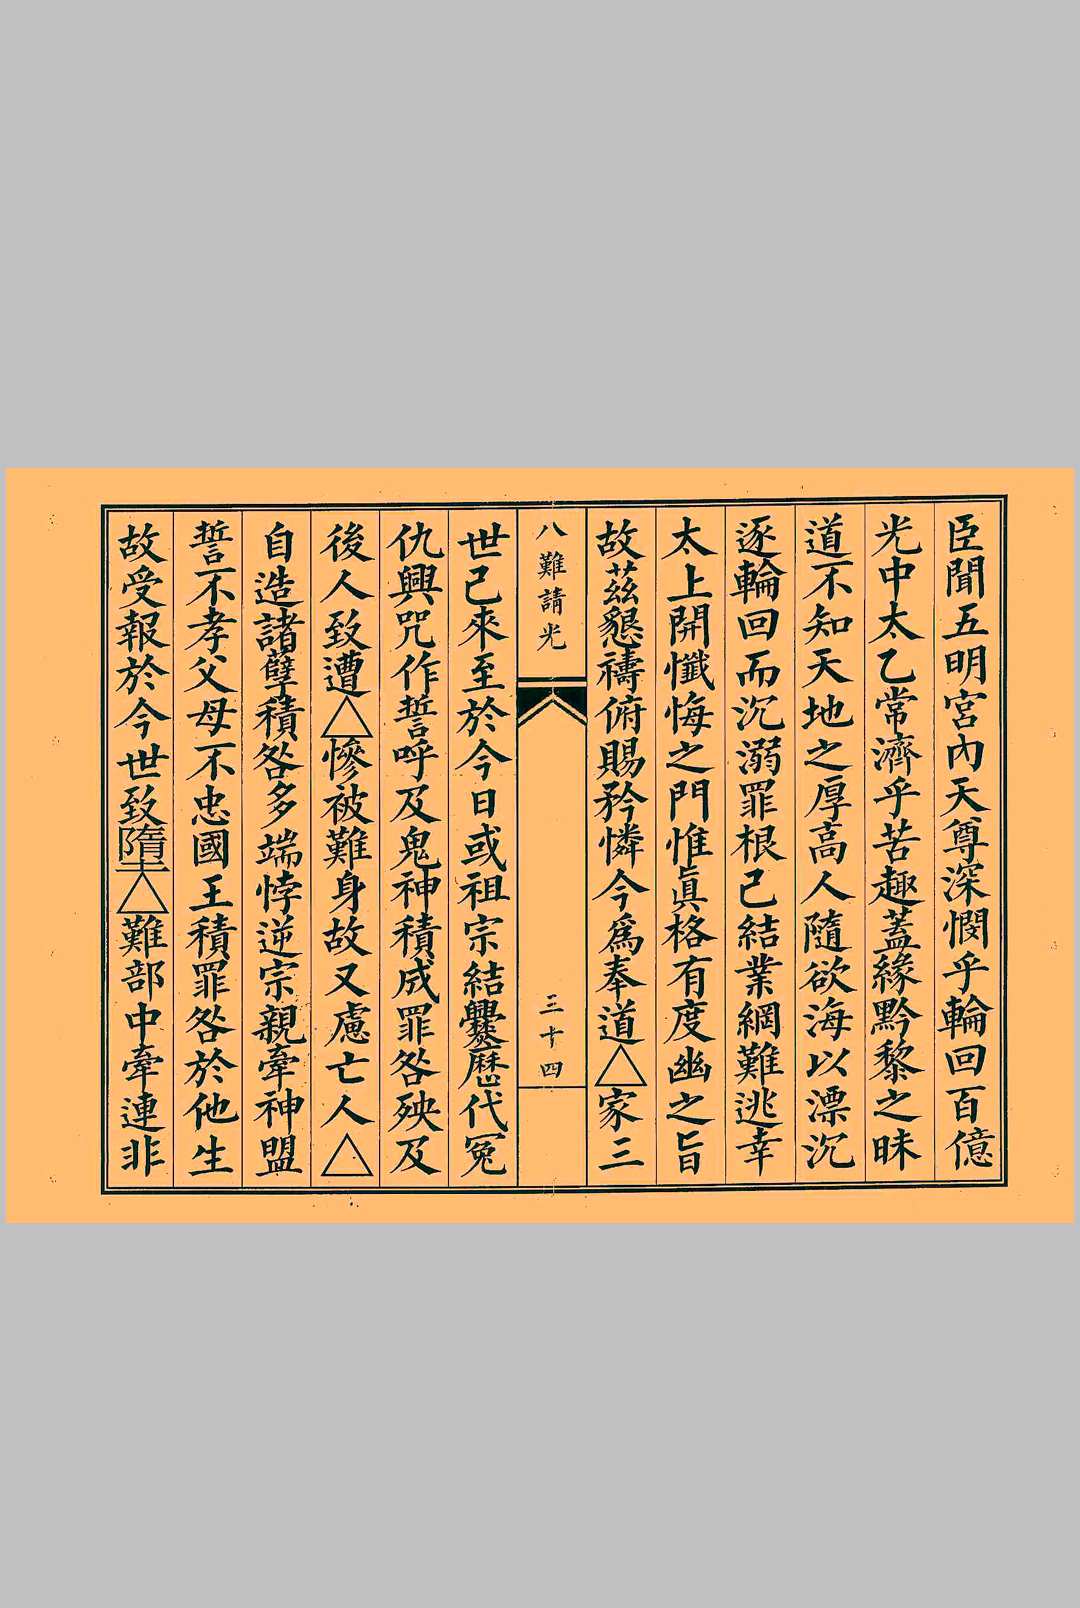 臣聞五明宮內天尊深憫乎輪回百億
光中太乙常濟乎苦趣蓋緣黔黎之昧
道不知天地之厚高人隨欲海以漂沉
逐輪回而沉溺罪根已結業網難逃幸
太上開懺悔之門惟眞格有度幽之旨
故茲懇禱俯賜矜憐今爲奉道△家三
八難請光
三十四
世已來至於今日或祖宗結釁歷代冤
仇興咒作誓呼及鬼神積成罪咎殃及
後人致遭△慘被難身故又慮亡人△
自造諸孽積咎多端悖逆宗親牽神盟
誓不孝父母不忠國王積罪咎於他生
故受報於今世致墮△難部中牽連非